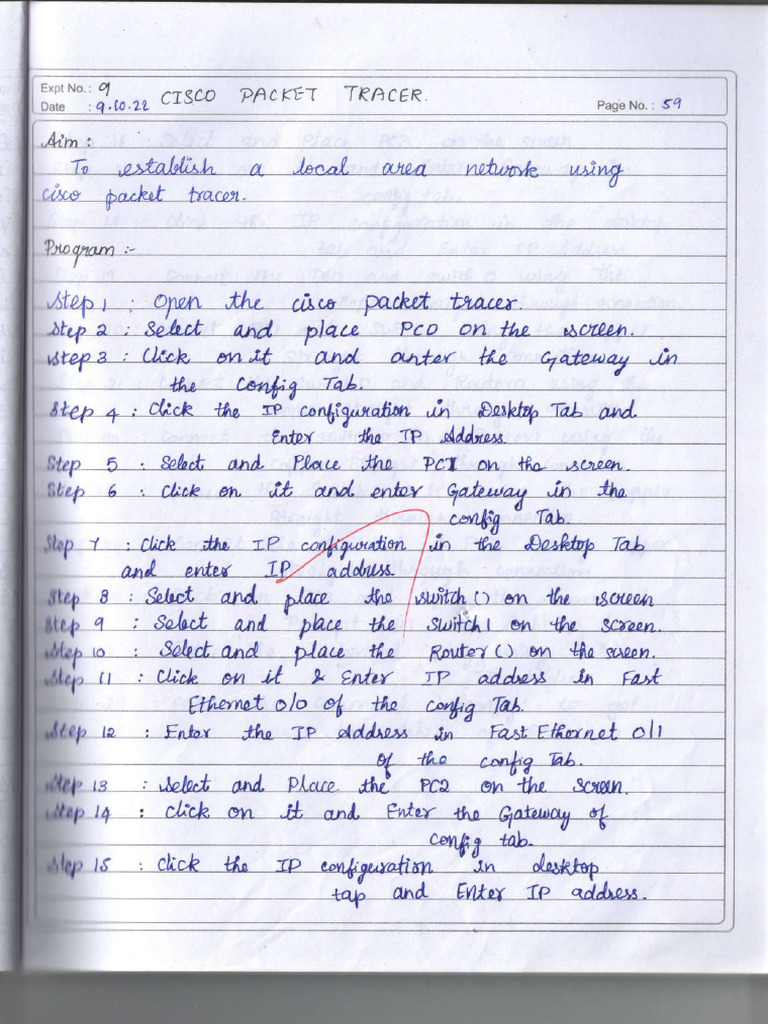 Expt No. : 9
CISCO PACKET TRACER.
Date : 9.10.22
Page No. : 59
Aim :
To establish a local area network using
cisco packet tracer.
Program :-
Step 1 : Open the cisco packet tracer.
Step 2 : Select and place PC0 on the screen.
Step 3 : Click on it and anter the Gateway in
the Config Tab.
Step 4 : Click the IP configuration in Desktop Tab and
Enter the IP Address.
Step 5 : Select and Place the PC1 on the screen.
Step 6 : Click on it and enter Gateway in the
config Tab.
Step 7 : Click the IP configuration in the Desktop Tab
and enter IP address.
Step 8 : Select and place the switch() on the screen
Step 9 : Select and place the Switch1 on the screen.
Step 10 : Select and place the Router() on the screen.
Step 11 : Click on it & Enter IP address in Fast
Ethernet 0/0 of the config Tab.
Step 12 : Enter the IP Address in Fast Ethornet 0/1
of the config Tab.
Step 13 : Select and Place the PC2 on the Screen.
Step 14 : Click on it and Enter the Gateway of
config tab.
Step 15 : Click the IP configuration in desktop
tap and Enter IP address.